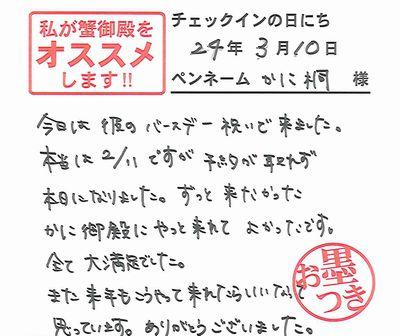 私が蟹御殿を
オススメ
します!!
チェックインの日にち
24年 3月10日
ペンネーム かに桐 様
今日は彼のバースデー祝いで来ました。
本当は2/11ですが予約が取れず
本日になりました。ずっと来たかった
かに御殿にやっと来れてよかったです。
全て大満足でした。
また来年もこうやって来れたらいいなって
思っています。ありがとうございました。
お墨
つき